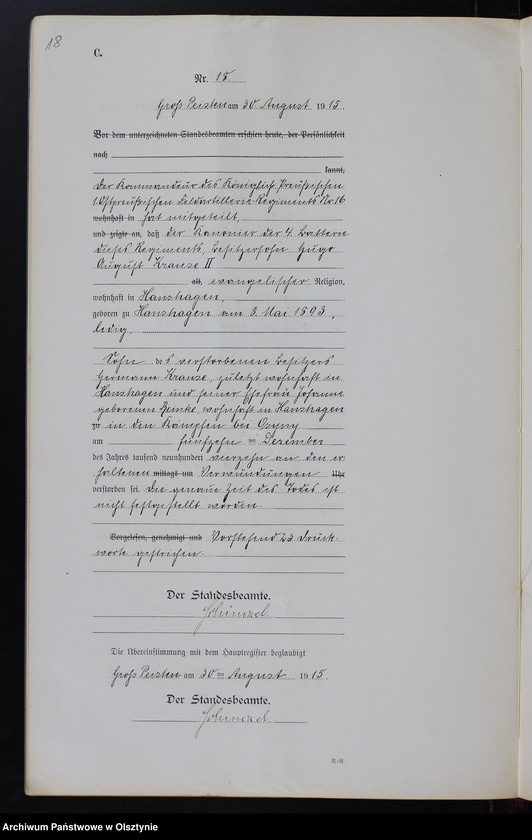 18
C.
Nr. 15.
Groß Peisten am 30 August 1915.
Vor dem unterzeichneten Standesbeamten erschien heute, der Persönlichkeit
nach
kannt,
Der Kommandeur des Königlich Preußischen
1. Ostpreußischen Feldartillerie Regiments Nr. 16
wohnhaft in hat mitgeteilt,
und zeigte an, daß der Kanonier der 4. Battern
dieses Regiments, Besitzersohn Hugo
August Krause II
alt, evangelischer Religion,
wohnhaft in Hanshagen,
geboren zu Hanshagen am 3. Mai 1893,
ledig,
Sohn des verstorbenen Besitzers
Hermann Krause, zuletzt wohnhaft in
Hanshagen und seiner Ehefrau Johanne
geborenen Remke, wohnhaft in Hanshagen
zu in den Kämpfen bei
am fünfzehn ten Dezember
des Jahres tausend neunhundert vierzehn an den er
haltenen mittags um Verwundungen Uhr
verstorben sei. Die genaue Zeit des Todes ist
nicht festgestellt worden.
Vorgelesen, genehmigt und Vorstehend 23 Druck-
worte gestrichen.
Der Standesbeamte.
Die Übereinstimmung mit dem Hauptregister beglaubigt
Groß Peisten am 30 ten August 1915.
Der Standesbeamte.
Archiwum Państwowe w Olsztynie